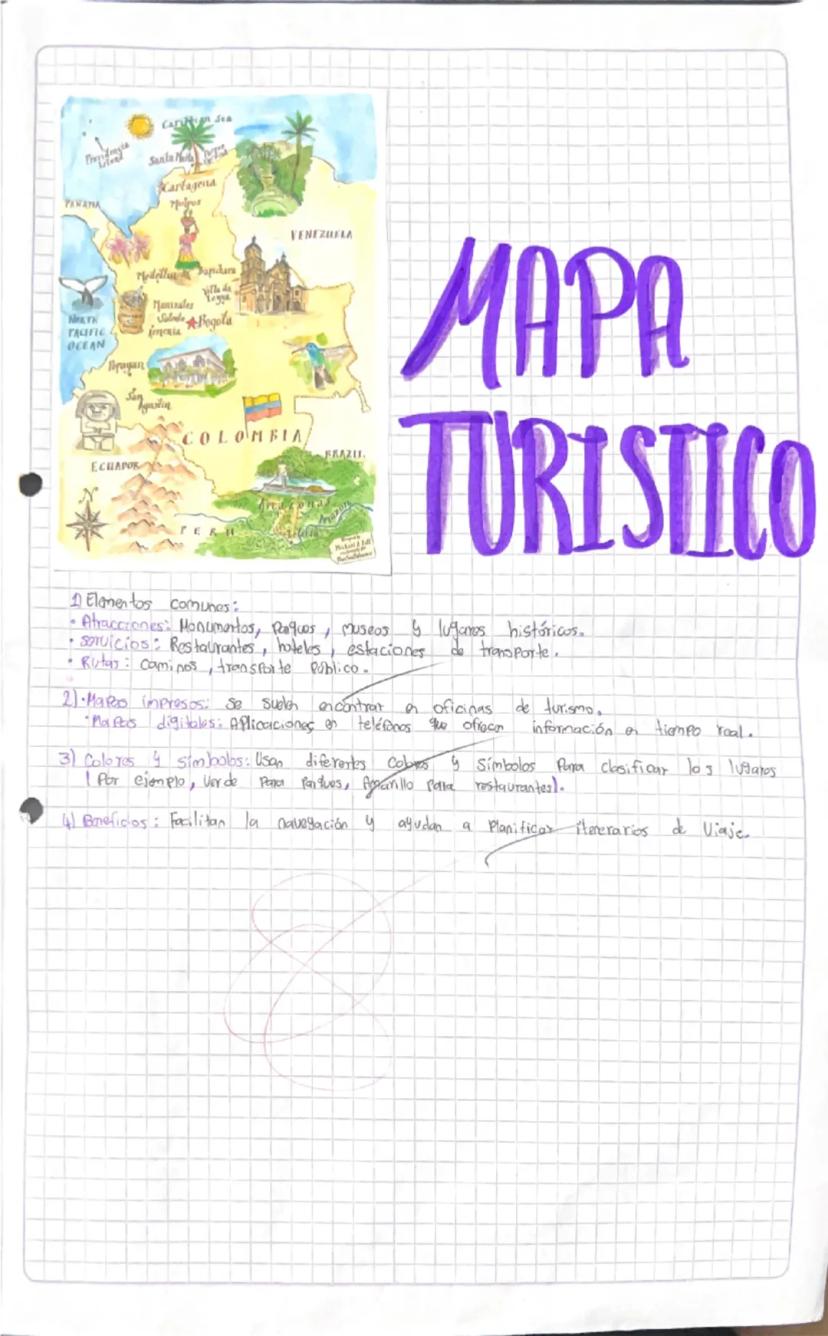 Caribbean Sea
Providencia Island
Santa Marta
Cartagena
Mompos
PANAMA
VENEZUELA
Medellin
Barichara
Villa de Leyva
Manizales
Salento
Armenia
Bogota
NORTH PACIFIC OCEAN
Popayan
San Agustin
COLOMBIA
ECUADOR
BRAZIL
Amazonas
N
PERU
MAPA
TURISTICO
1) Elementos comunes:
• Atracciones: Monumentos, Parques, museos y lugares históricos.
• Servicios: Restaurantes, hoteles, estaciones de transporte.
• Rutas: caminos, transporte público.
2) • Mapas impresos: se suelen encontrar en oficinas de turismo.
• Mapas digitales: Aplicaciones en teléfonos que ofrecen información en tiempo real.
3) Colores y símbolos: Usan diferentes colores y símbolos para clasificar los lugares
(Por ejemplo, verde para Parques, Amarillo para restaurantes).
4) Beneficios: Facilitan la navegación y ayudan a planificar itererarios de viaje.